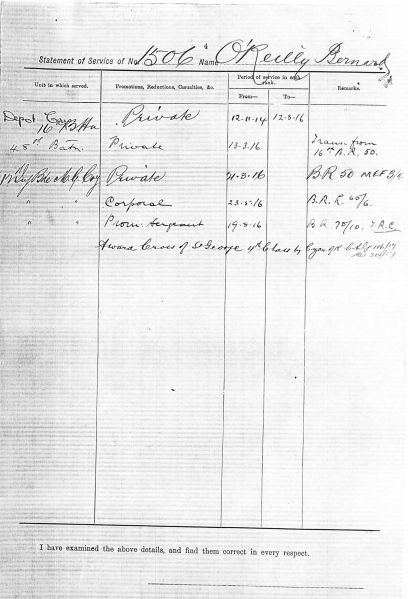 Statement of Service of No 1506 4 Name O'Reilly Bernard
Unit in which served. Promotions, Reductions, Casualties, &c. Period of service in each rank. From— To— Remarks.
Depot Coy 16 Private 12-11-14 12-3-16
45th Batn. Private 13.3.16 Trans from 16th A.R. 50.
Private 21-3-16 B.R 50
" " Corporal 23-5-16 B.R.
" " Prom. Sergeant 19-8-16 B.R. 70/10.
Award Cross of St George 4th Class by
I have examined the above details, and find them correct in every respect.